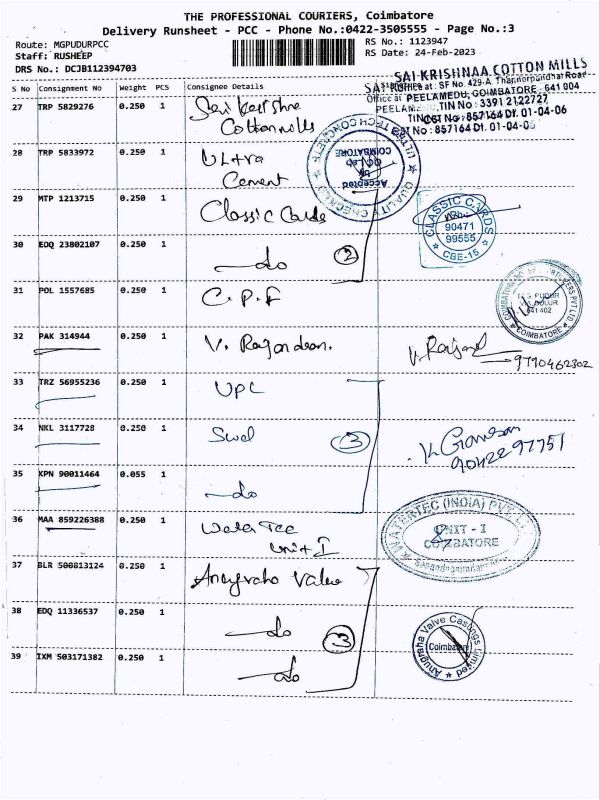 THE PROFESSIONAL COURIERS, Coimbatore
Delivery Runsheet - PCC - Phone No.:0422-3505555 - Page No.:3
Route: MGPUDURPCC
Staff: RUSHEEP
DRS No.: DCJB112394703
RS No.: 1123947
RS Date: 24-Feb-2023
SAI KRISHNAA COTTON MILLS
at: SF No. 429-A, Thannerpandhal Road
Office at PEELAMEDU, COIMBATORE - 641 004
TIN No : 3391 2122727
CST No : 857164 Dt. 01-04-06
S No Consignment No Weight PCS Consignee Details
27 TRP 5829276 0.250 1 Sai Krishna
Cotton mills
28 TRP 5833972 0.250 1 Ultra
Cement
ULTRA TECH CONCRETE
COIMBATORE
QC Lab
by
Accepted
QUALITY CHECKED
29 MTP 1213715 0.250 1 Classic Cards
CLASSIC CARDS
90471
99555
CBE-15
30 EDQ 23802107 0.250 1 do
2
31 POL 1557685 0.250 1 C.P.F
641 402
COIMBATORE
32 PAK 314944 0.250 1 V. Rajendran.
9790462302
33 TRZ 56955236 0.250 1 UPC
34 NKL 3117728 0.250 1 Swel
3
K Ganesan
9042297751
35 KPN 90011464 0.055 1 do
36 MAA 859226388 0.250 1 Water Tec
Unit I
WATERTEC (INDIA) PVT. LTD.
UNIT - I
COIMBATORE
37 BLR 500813124 0.250 1 Anugraha Valve
38 EDQ 11336537 0.250 1 do
3
39 IXM 503171382 0.250 1 do
Anugraha Valve Castings Limited
Coimbatore